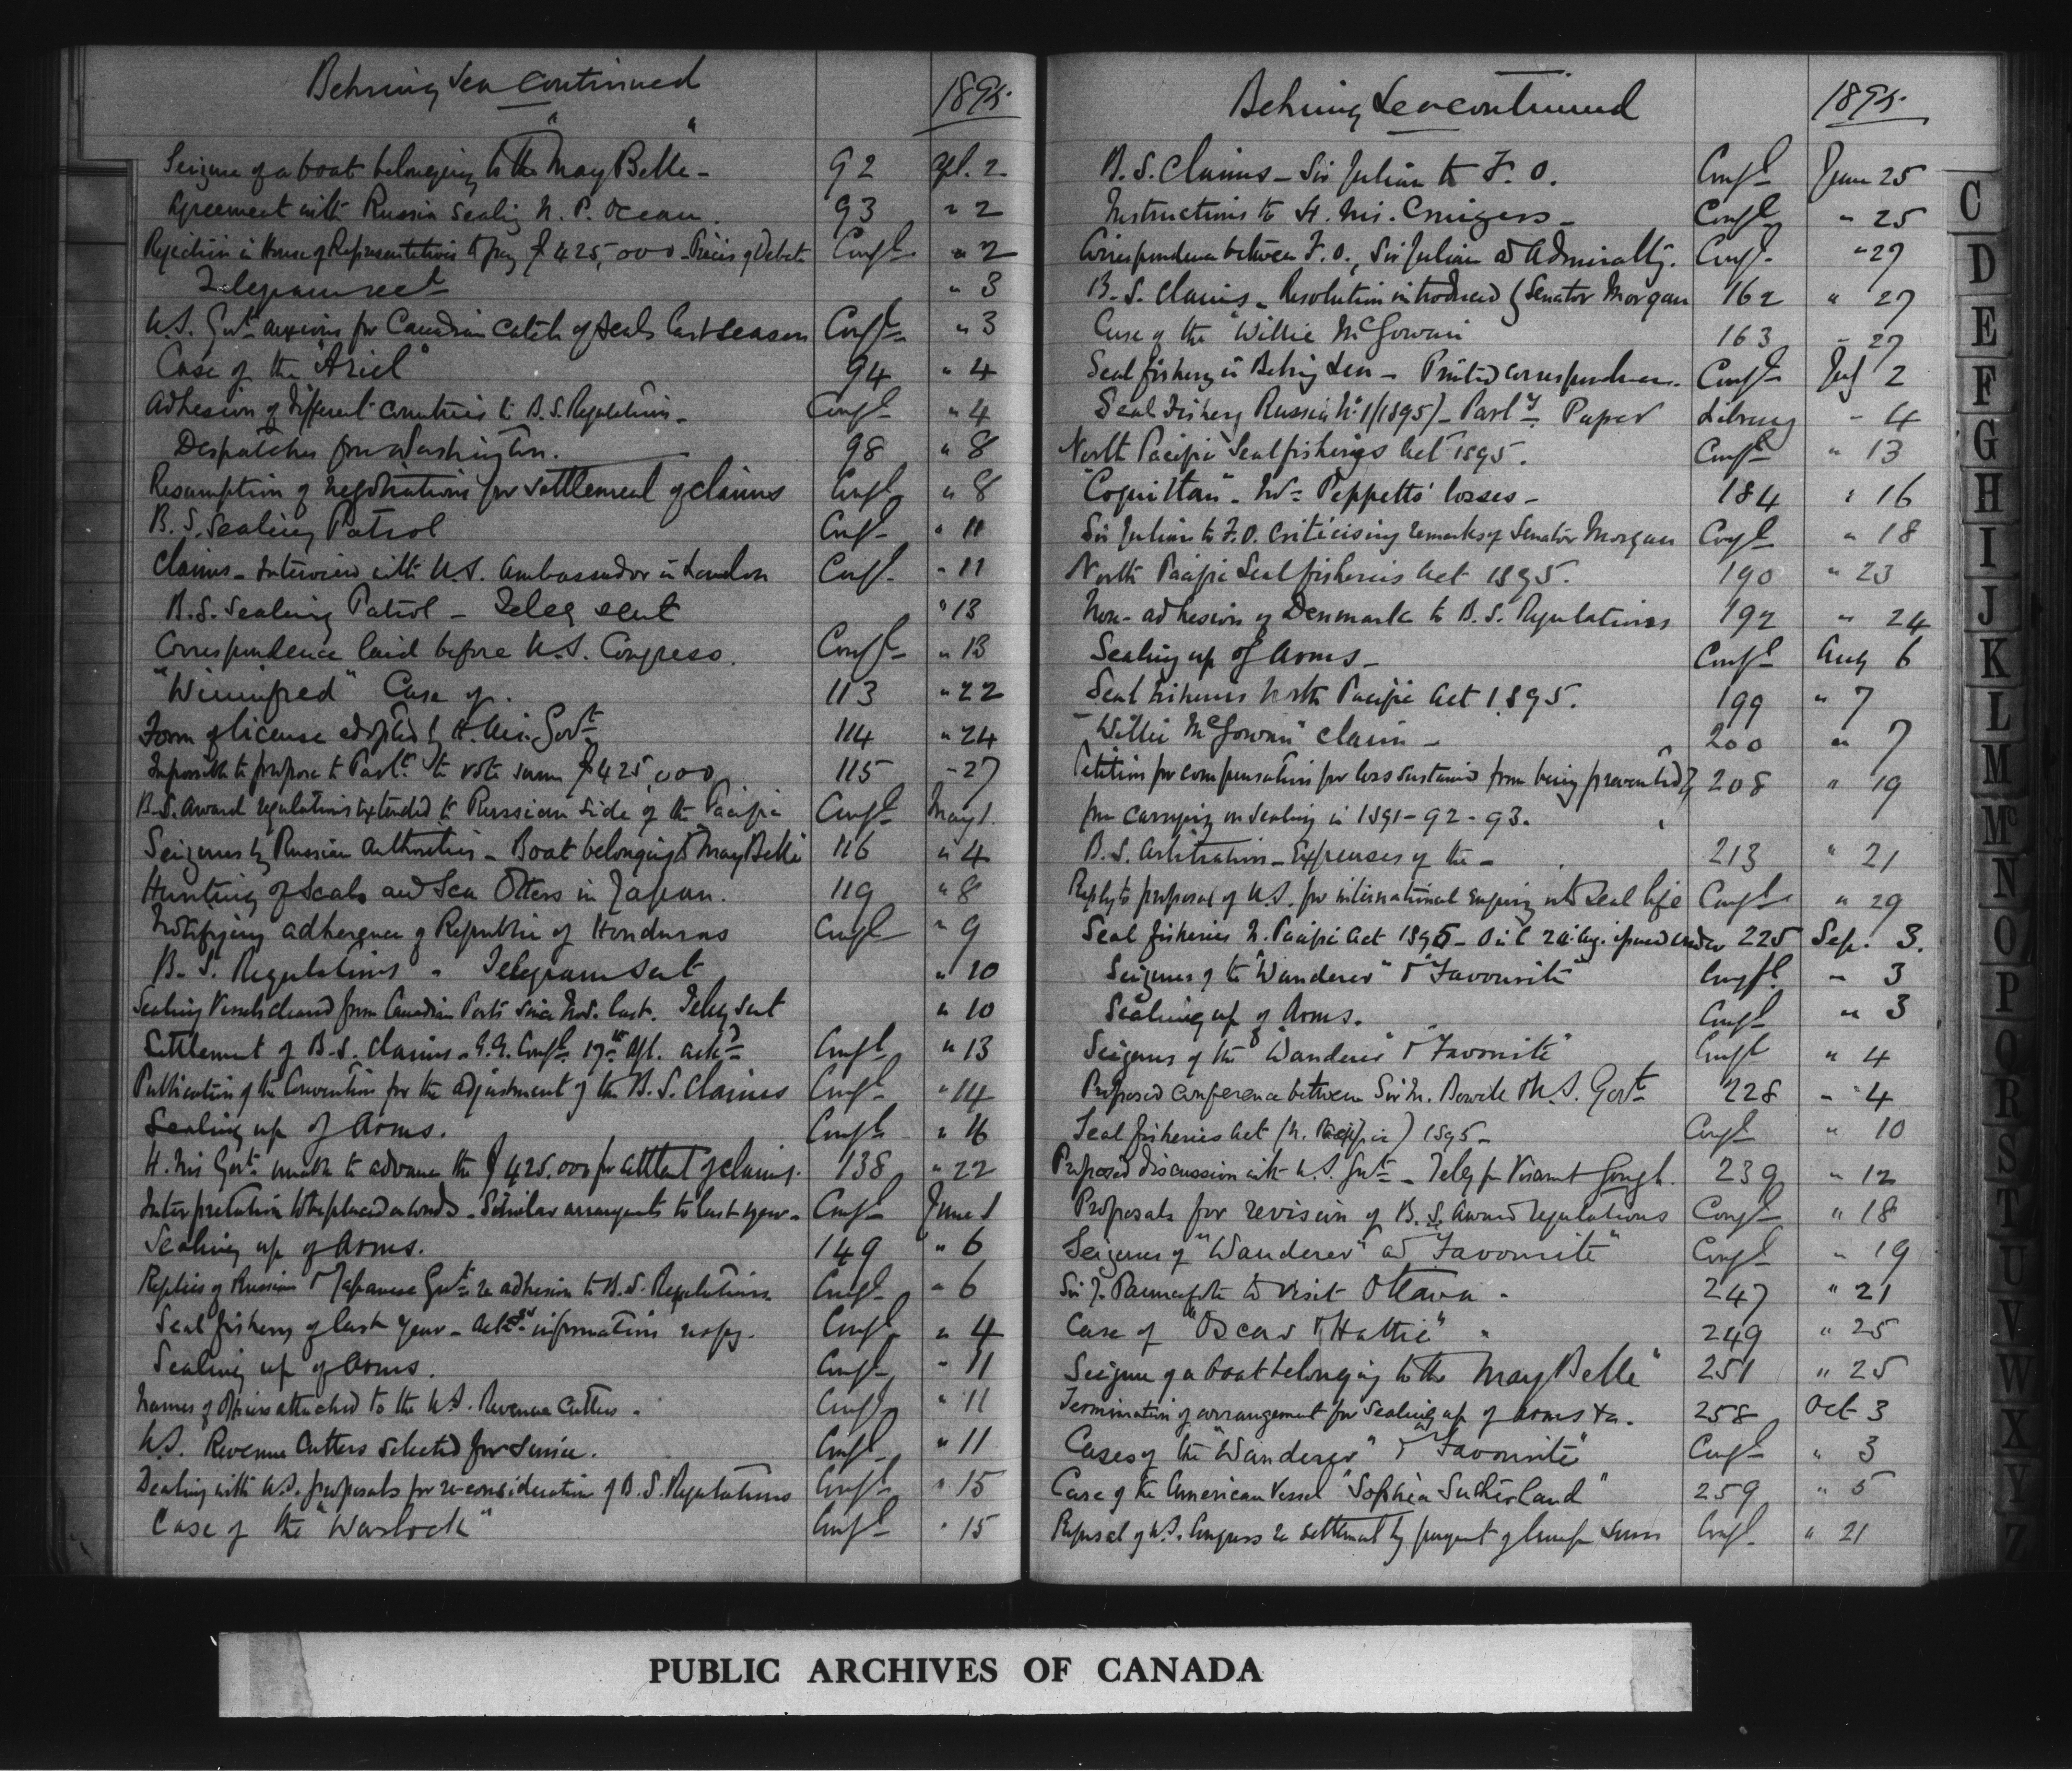 Behring Sea continued
1895.
Seizure of a boat belonging to the "May Belle" - 92 Apl. 2
Agreement with Russia sealing N. P. Ocean. 93 " 2
Rejection in House of Representatives to pay $425,000 - Précis of Debate Confl. " 2
Telegram sent " 3
U.S. Govt. anxious for Canadian catch of seals last season Confl. " 3
Case of the "Ariel" 94 " 4
Adhesion of different countries to B.S. Regulations - Confl. " 4
Despatches from Washington. 98 " 8
Resumption of negotiations for settlement of claims Confl. " 8
B. S. Sealing Patrol Confl. " 11
Claims - Interview with U.S. Ambassador in London Confl. " 11
B.S. Sealing Patrol - Teleg sent " 13
Correspondence laid before U.S. Congress. Confl. " 13
"Winnifred" Case of. 113 " 22
Form of license adopted by H. M. Govt. 114 " 24
Impossible to propose to Parlt. to vote sum $425,000 115 " 27
B.S. Award regulations extended to Russian side of the Pacific Confl. May 1.
Seizures by Russian Authorities - Boat belonging to May Belle 116 " 4
Hunting of Seals and Sea Otters in Japan. 119 " 8
Notifying adherence of Republic of Honduras Confl. " 9
B. S. Regulations - Telegram sent " 10
Sealing Vessels cleared from Canadian Ports since Nov. last. Teleg sent " 10
Settlement of B.S. claims - G.G. Confl. 17th Apl. ackd. Confl. " 13
Publication of the Convention for the adjustment of the B. S. Claims Confl. " 14
Sealing up of Arms. Confl. " 16
H. M's Govt. unable to advance the $425,000 for settlemt of claims. 138 " 22
Interpretation to be placed on words - Similar arrangemts to last year - Confl. June 1
Sealing up of Arms. 149 " 6
Replies of Russian & Japanese Govts. re adhesion to B.S. Regulations. Confl. " 6
Seal fishery of last year - information Confl. " 4
Sealing up of Arms. Confl. " 11
Names of Officers attached to the U.S. Revenue Cutters. Confl. " 11
U.S. Revenue Cutters selected for service. Confl. " 11
Dealing with U.S. proposals for re-consideration of B.S. Regulations Confl. " 15
Case of the "Warlock" Confl. " 15
Behring Sea continued
1895.
B.S. Claims - Sir Julian to F. O. Confl. June 25
Instructions to H. M's. Cruizers - Confl. " 25
Correspondence between F.O., Sir Julian and Admiralty. Confl. " 27
B. S. Claims - Resolution introduced by Senator Morgan 162 " 27
Case of the "Willie McGowan 163 " 27
Seal fishery in Behring Sea - Printed correspondence. Confl. July 2
Seal Fishery Russia No. 1/(1895) - Parly. Paper Library " 4
North Pacific Seal fisheries Act 1895. Confl. " 13
"Coquitlan" - Wm. Peppetts' losses - 184 " 16
Sir Julian to F.O. criticising remarks of Senator Morgan Confl. " 18
North Pacific Seal fisheries Act 1895. 190 " 23
Non-adhesion of Denmark to B.S. Regulations 192 " 24
Sealing up of Arms - Confl. Aug 6
Seal fisheries North Pacific Act 1895. 199 " 7
"Willie McGowan" claim - 200 " 7
Petition for compensation for loss sustained from being prevented 208 " 19
from carrying on sealing in 1891-92-93.
B. S. Arbitration - Expenses of the - 213 " 21
Reply to proposal of U.S. for international enquiry into seal life Confl. " 29
Seal fisheries N. Pacific Act 1895 - O in C 24 Aug. issued under 225 Sep. 3.
Seizures of the "Wanderer" & "Favourite" Confl. " 3
Sealing up of Arms. Confl. " 3
Seizures of the "Wanderer" & "Favorite" Confl " 4
Proposed conference between Sir M. Bowell & U.S. Govt. 228 " 4
Seal fisheries Act (N. Pacific) 1895 - Confl. " 10
Proposed discussion with U.S. Govt. - Teleg fr Viscount Gough. 239 " 12
Proposals for revision of B. S. Award regulations Confl. " 18
Seizures of "Wanderer" and "Favourite" Confl. " 19
Sir J. Pauncefote to visit Ottawa - 247 " 21
Case of "Oscar & Hattie" 249 " 25
Seizure of a boat belonging to the "May Belle" 251 " 25
Termination of arrangement for sealing up of arms &c. 258 Oct 3
Cases of the "Wanderer" & "Favourite" Confl. " 3
Case of the American Vessel "Sophia Sutherland" 259 " 5
Refusal of U.S. Congress re settlement by payment of lump sum Confl. " 21
C
D
E
F
G
H
I
J
K
L
M
Mc
N
O
P
Q
R
S
T
U
V
W
X
Y
Z
PUBLIC ARCHIVES OF CANADA